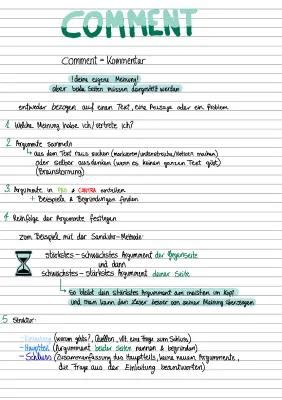 COMMENT
Comment = Kommentar
! deine eigene Meinung!
aber beide Seiten müssen dargestellt werden
entweder bezogen auf einen Text, eine Aussage oder ein Problem
1. Welche Meinung habe ich/vertrete ich?
2. Argumente sammeln
↳ aus dem Text raus suchen (markieren/unterstreichen/Notizen machen)
oder selber ausdenken (wenn es keinen ganzen Text gibt)
(Brainstorming)
3. Argumente in PRO & CONTRA einteilen
+ Beispiele & Begründungen finden
4. Reihfolge der Argumente festlegen
zum Beispiel mit der Sanduhr-Methode:
stärkstes - schwächstes Argument der Gegenseite
und dann
schwächstes - stärkstes Argument deiner Seite
↳ So bleibt dein stärkstes Argument am meisten im Kopf
und man kann den Leser besser von seiner Meinung überzeugen
5. Struktur:
- Einleitung (worum gehts?, Quellen, vllt. eine Frage zum Schluss)
- Hauptteil (Argument beider Seiten nennen & begründen)
- Schluss (Zusammenfassung des Hauptteils, keine neuen Argumente,
die Frage aus der Einleitung beantworten)